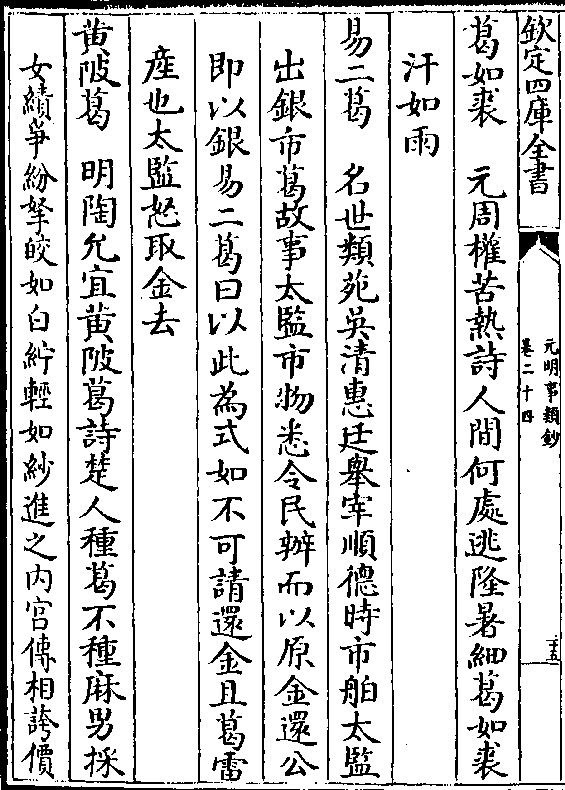 欽定四庫全書
元明事類鈔
卷二十四
二五
葛如裘　元周權苦熱詩人間何處逃隆暑細葛如裘
汗如雨
易二葛　名世類苑吳清惠廷舉宰順德時市舶太監
出銀市葛故事太監市物悉令民辦而以原金還公
即以銀易二葛曰以此為式如不可請還金且葛雷
産也太監怒取金去
黄陂葛　明陶允宜黄陂葛詩楚人種葛不種麻男採
女績爭紛拏皎如白紵輕如紗進之内宫傳相誇價